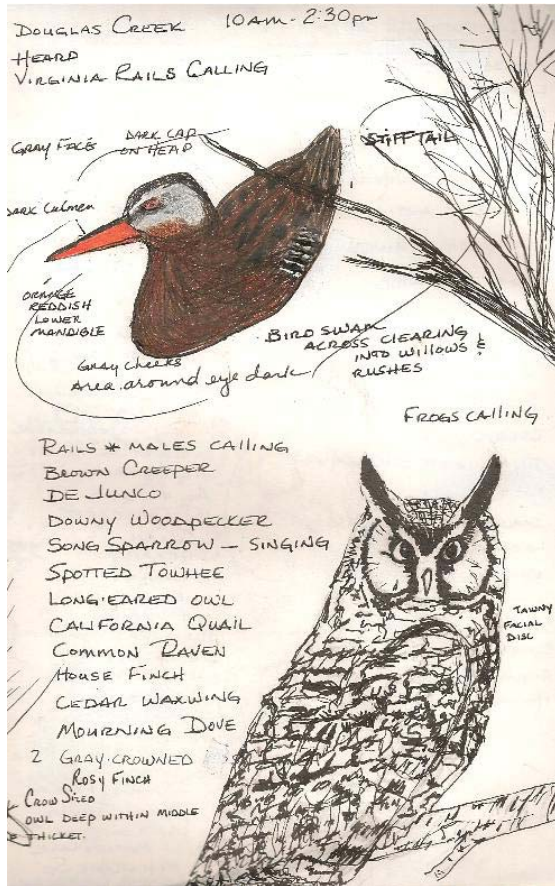 DOUGLAS CREEK 10AM - 2:30pm
HEARD
VIRGINIA RAILS CALLING
GRAY FACE
DARK CAP
ON HEAD
STIFF TAIL
DARK CULMEN
ORANGE
REDDISH
LOWER
MANDIBLE
GRAY CHEEKS
Area around eye dark
BIRD SWAM
ACROSS CLEARING
INTO WILLOWS &
RUSHES
FROGS CALLING
RAILS * MALES CALLING
BROWN CREEPER
DE JUNCO
DOWNY WOODPECKER
SONG SPARROW - SINGING
SPOTTED TOWHEE
LONG-EARED OWL
CALIFORNIA QUAIL
COMMON RAVEN
HOUSE FINCH
CEDAR WAXWING
MOURNING DOVE
2 GRAY-CROWNED
ROSY FINCH
TAWNY
FACIAL
DISC
CROW SIZED
OWL DEEP WITHIN MIDDLE
THICKET.